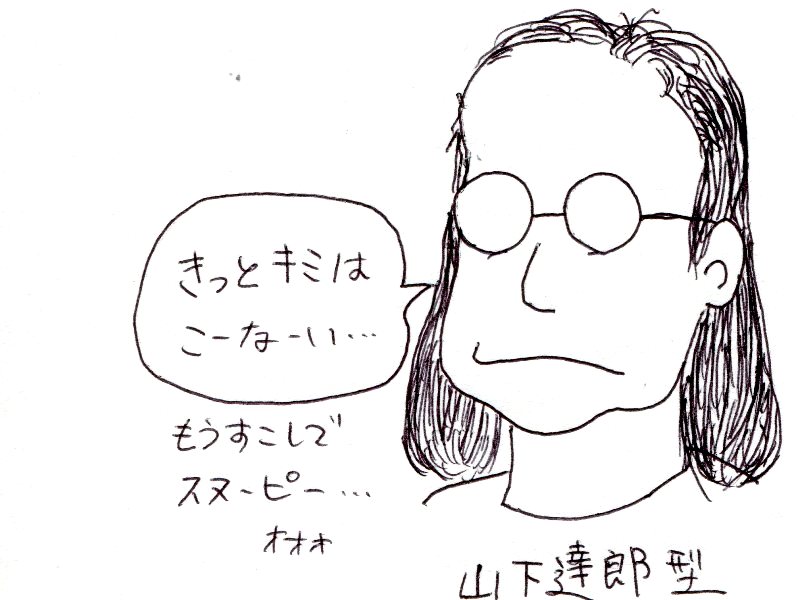 きっとキミは
こーなーい…
もうすこしで
スヌーピー…
オオォ
山下達郎型